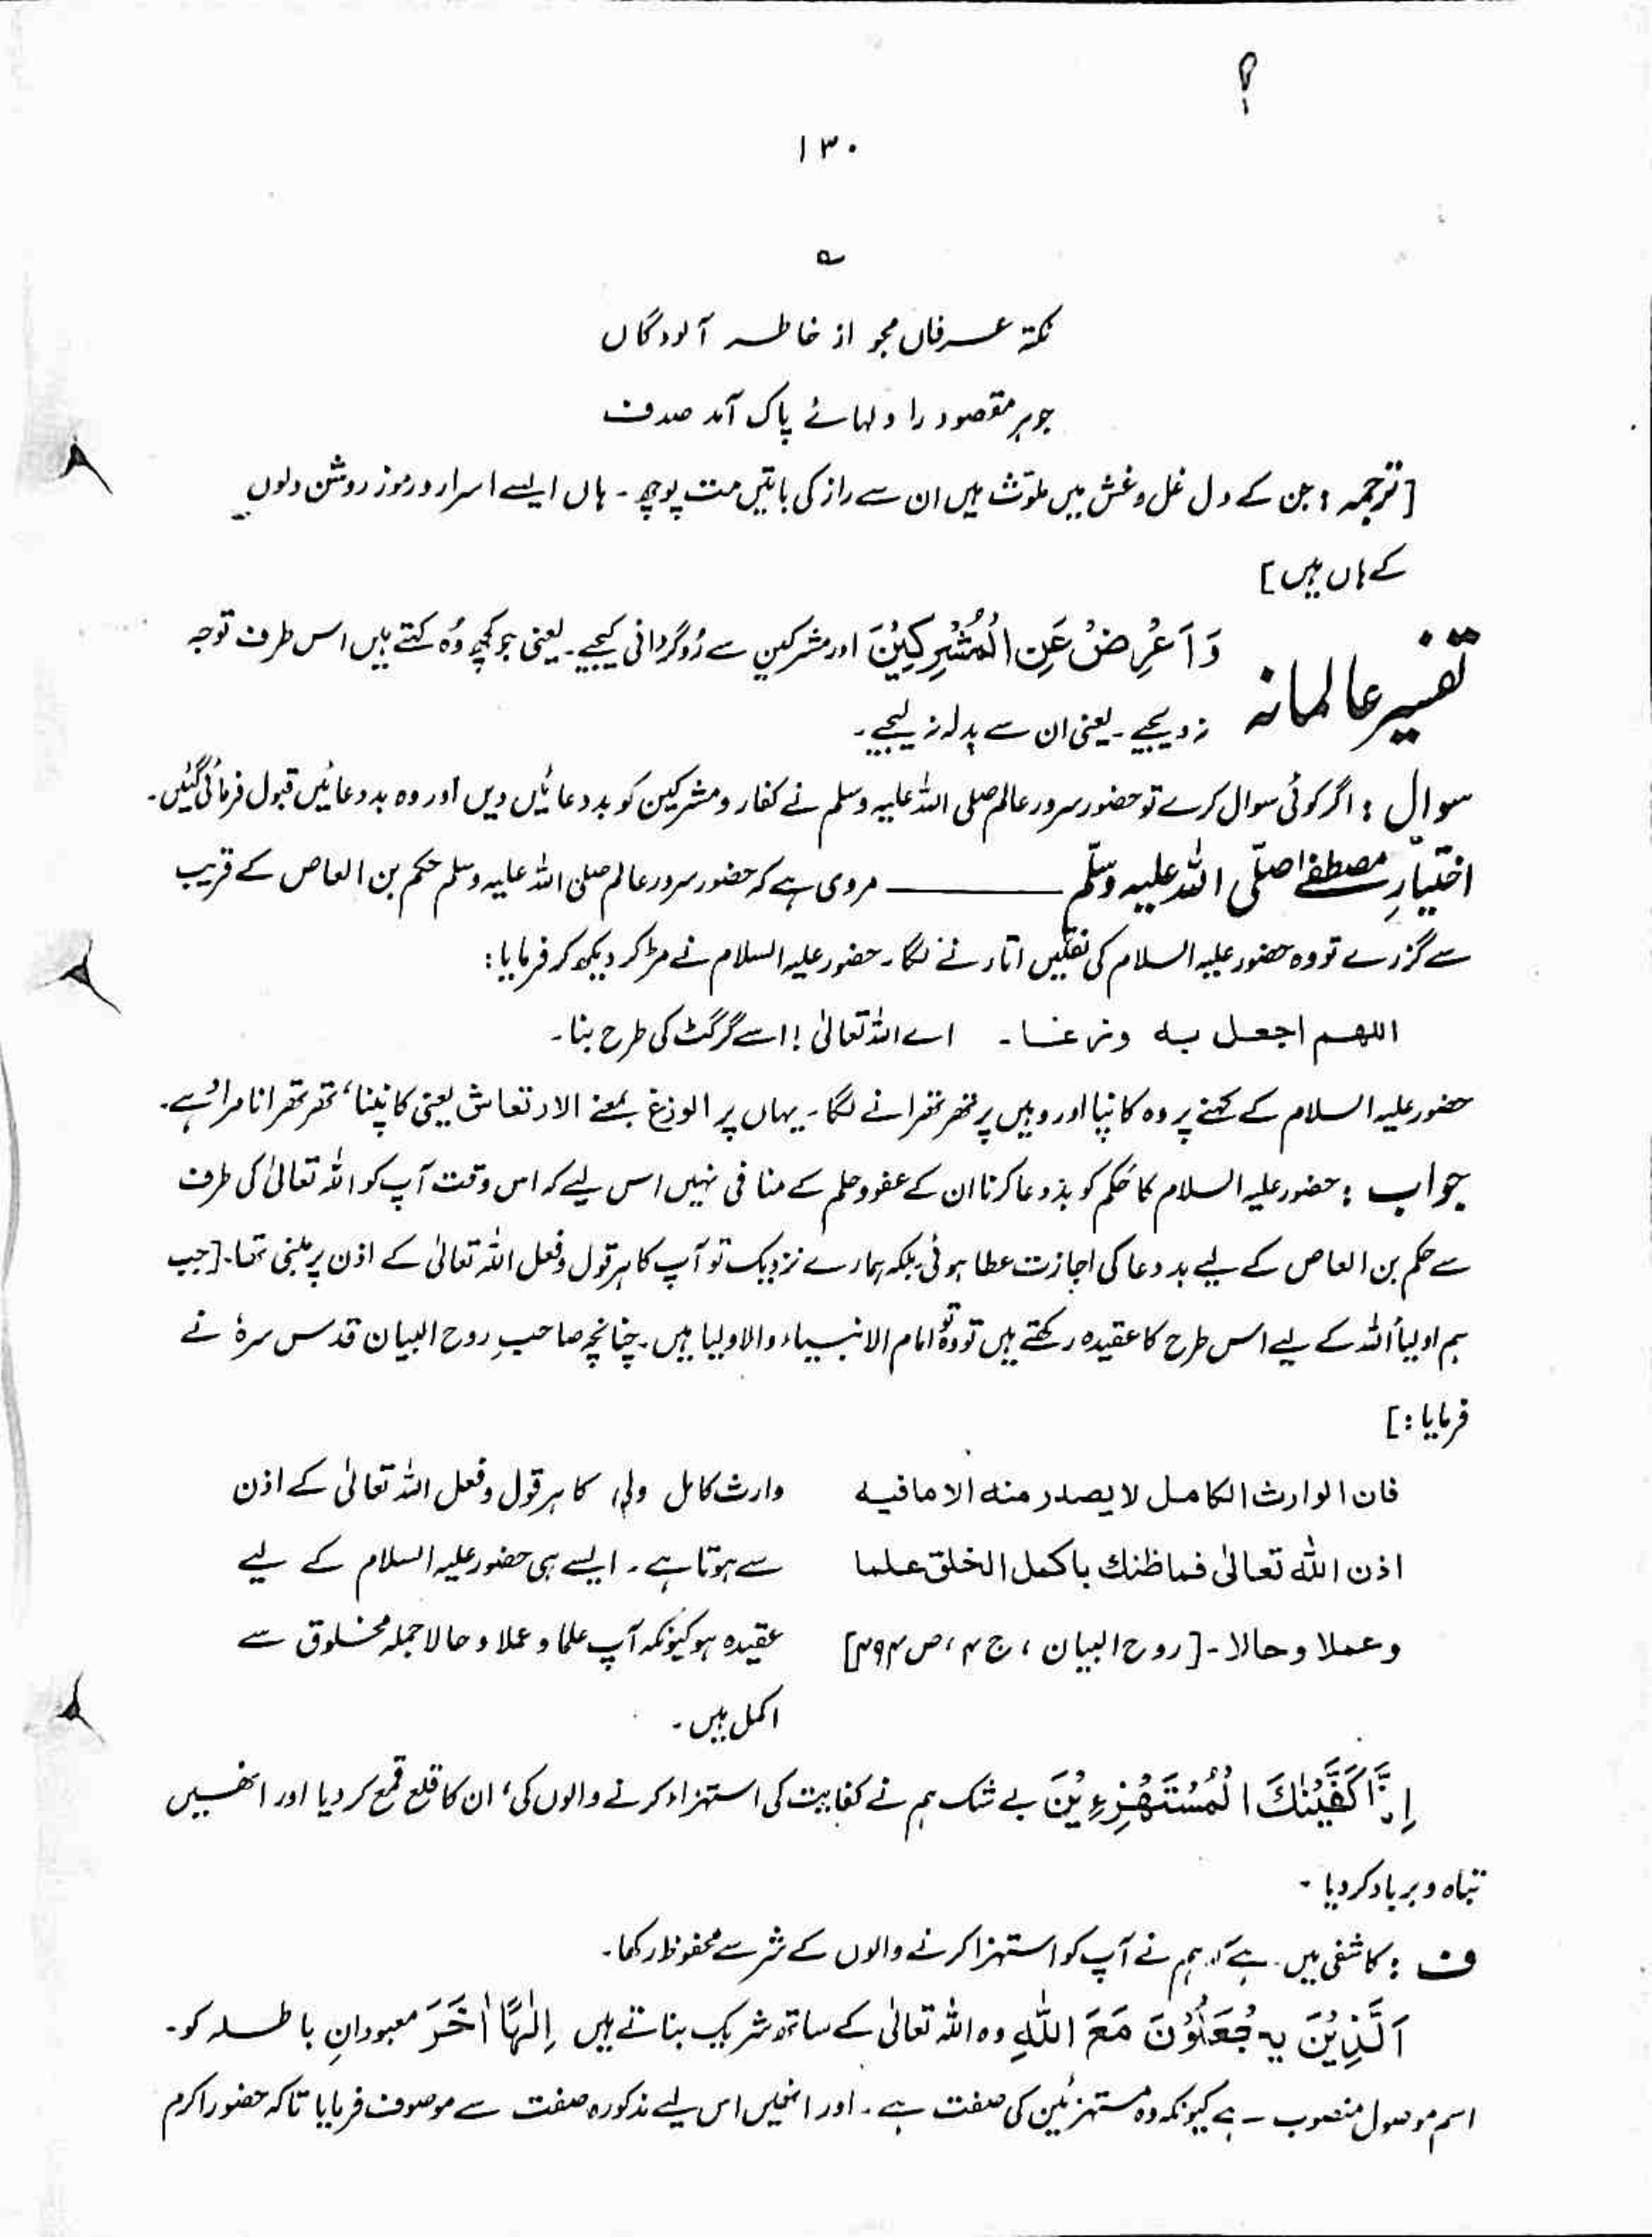 ؟
۱۳۰
؎
نکتۂ عرفاں مجو از خاطر آلودگاں
جوہر مقصود را دلہائے پاک آمد صدف
[ترجمہ : جن کے دل غل وغش میں ملوّث ہیں ان سے راز کی باتیں مت پوچھ ۔ ہاں ایسے اسرار و رموز روشن دلوں
کے ہاں ہیں]
تفسیر عالمانہ وَ اَعْرِضْ عَنِ الْمُشْرِکِیْنَ اور مشرکین سے رُوگردانی کیجیے ۔ یعنی جو کچھ وُہ کہتے ہیں اس طرف توجہ
نہ دیجیے ۔ یعنی ان سے بدلہ نہ لیجیے ۔
سوال : اگر کوئی سوال کرے تو حضور سرور عالم صلی اللہ علیہ وسلم نے کفار و مشرکین کو بددعائیں دیں اور وہ بددعائیں قبول فرمائی گئیں ۔
اختیارِ مصطفےٰ صلّی اللہ علیہ وسلّم ——— مروی ہے کہ حضور سرور عالم صلی اللہ علیہ وسلم حکم بن العاص کے قریب
سے گزرے تو وہ حضور علیہ السلام کی نقلیں اتارنے لگا ۔ حضور علیہ السلام نے مڑ کر دیکھ کر فرمایا :
اللھم اجعل بہ وزغا ۔ اے اللہ تعالیٰ ! اسے گرگٹ کی طرح بنا ۔
حضور علیہ السلام کے کہنے پر وہ کانپا اور وہیں پر تھر تھرانے لگا ۔ یہاں پر الوزغ بمعنے الارتعاش یعنی کانپنا ، تھر تھرانا مراد ہے ۔
جواب : حضور علیہ السلام کا حَکم کو بددعا کرنا ان کے عفو و حلم کے منافی نہیں اس لیے کہ اس وقت آپ کو اللہ تعالیٰ کی طرف
سے حکم بن العاص کے لیے بددعا کی اجازت عطا ہوئی بلکہ ہمارے نزدیک تو آپ کا ہر قول و فعل اللہ تعالیٰ کے اذن پر مبنی تھا ۔ [جب
ہم اولیأ اللہ کے لیے اس طرح کا عقیدہ رکھتے ہیں تو وُہ تو امام الانبیاء والاولیا ہیں ۔ چنانچہ صاحبِ روح البیان قدس سرہٗ نے
فرمایا :]
فان الوارث الکامل لا یصدر منہ الا ما فیہ وارث کامل ولی کا ہر قول و فعل اللہ تعالیٰ کے اذن
اذن اللہ تعالیٰ فما ظنك باکمل الخلق علما سے ہوتا ہے ۔ ایسے ہی حضور علیہ السلام کے لیے
وعملا وحالا ۔ [روح البیان ، ج ۴ ، ص ۴۹۴] عقیدہ ہو کیونکہ آپ علما و عملا و حالا جملہ مخلوق سے
اکمل ہیں ۔
اِنَّا کَفَیْنٰكَ الْمُسْتَهْزِءِیْنَ بے شک ہم نے کفایت کی استہزاء کرنے والوں کی ، ان کا قلع قمع کر دیا اور انھیں
تباہ و برباد کر دیا ۔
ف : کاشفی میں ہے کہ ہم نے آپ کو استہزا کرنے والوں کے شر سے محفوظ رکھا ۔
اَلَّذِیْنَ یَجْعَلُوْنَ مَعَ اللّٰهِ وہ اللہ تعالیٰ کے ساتھ شریک بناتے ہیں اِلٰهًا اٰخَرَ معبودانِ باطلہ کو ۔
اسم موصول منصوب ہے کیونکہ وہ مستہزئین کی صفت ہے ۔ اور انھیں اس لیے مذکورہ صفت سے موصوف فرمایا تاکہ حضور اکرم